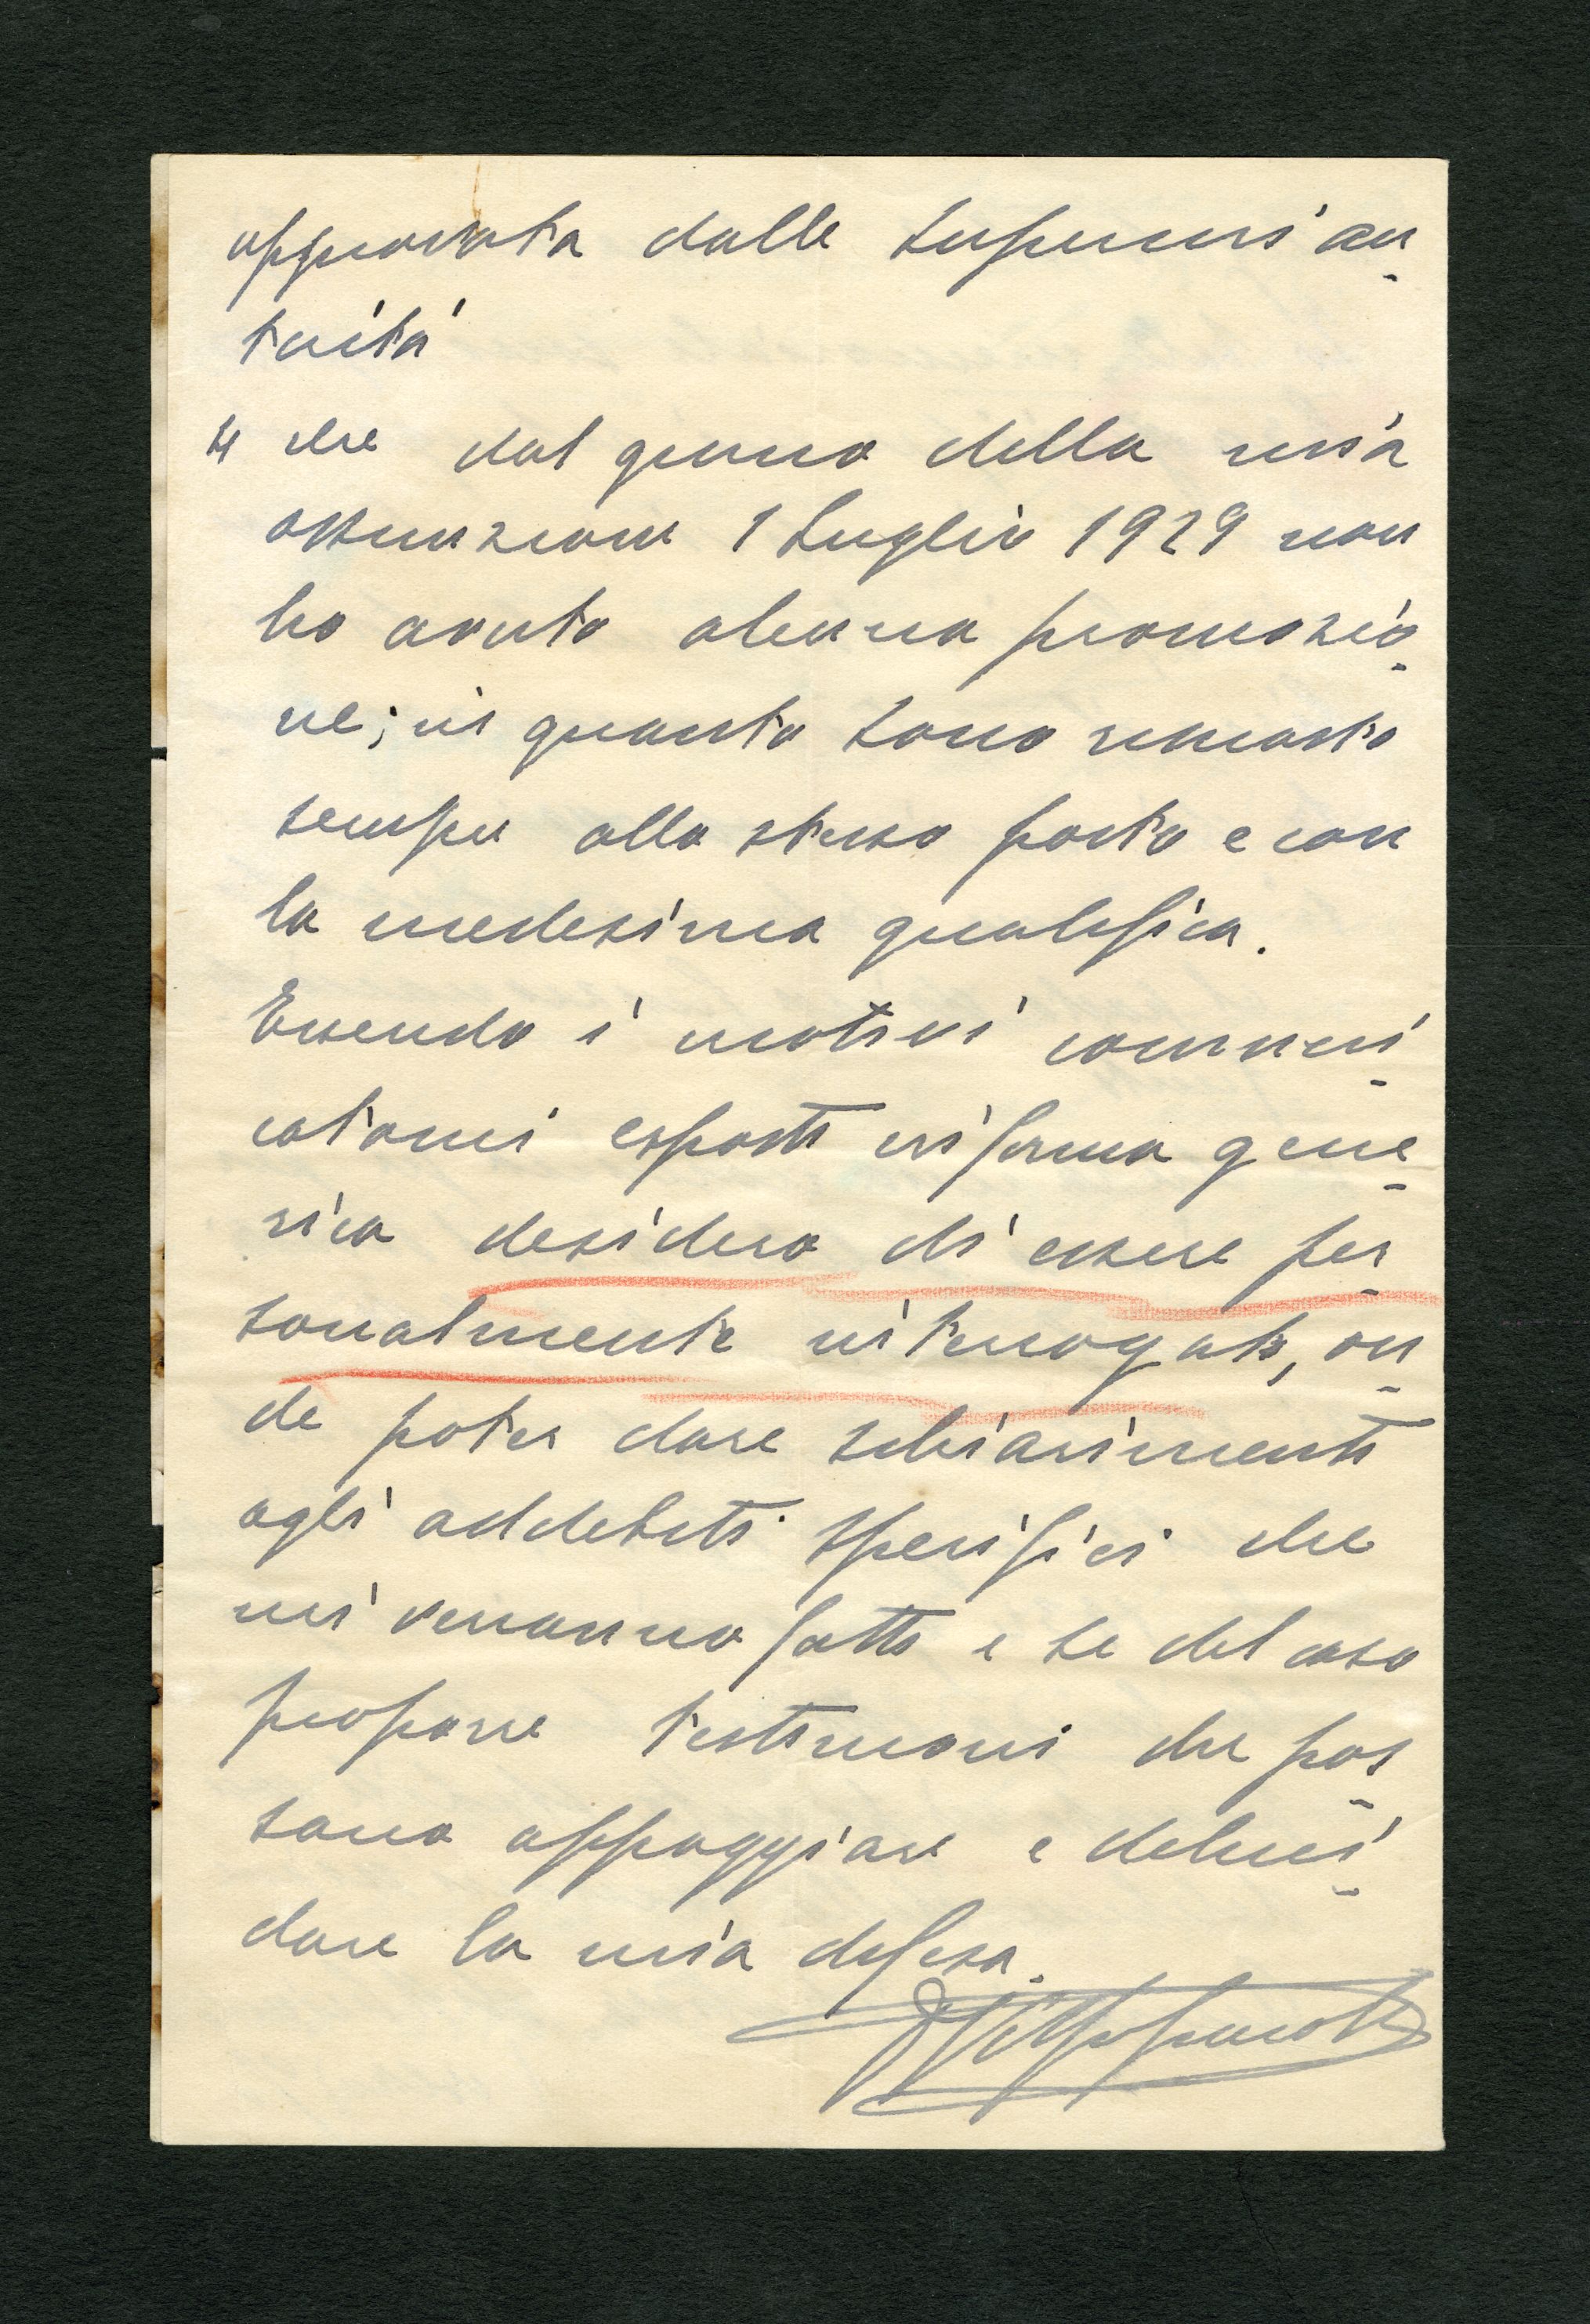 approvata dalle superiori au-
torità
4 che dal giorno della mia
assunzione 1 Luglio 1929 non
ho avuto alcuna promozio-
ne; in quanto sono rimasto
sempre allo stesso posto e con
la medesima qualifica.
Essendo i motivi comuni-
catomi esposti in forma gene-
rica desidero di essere per-
sonalmente interrogato, on-
de poter dare schiarimenti
agli addebiti specifici che
mi verranno fatti e se del caso
proporre testimoni che pos-
sono appoggiare e deluci-
dare la mia difesa.